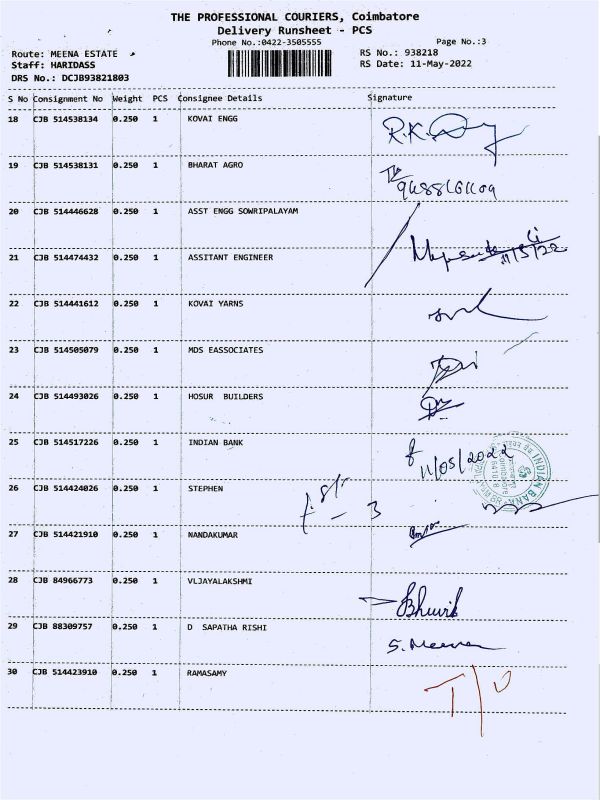 THE PROFESSIONAL COURIERS, Coimbatore
Delivery Runsheet - PCS
Phone No.:0422-3505555
Page No.:3
Route: MEENA ESTATE
RS No.: 938218
Staff: HARIDASS
RS Date: 11-May-2022
DRS No.: DCJB93821803
S No Consignment No Weight PCS Consignee Details Signature
18 CJB 514538134 0.250 1 KOVAI ENGG
19 CJB 514538131 0.250 1 BHARAT AGRO
20 CJB 514446628 0.250 1 ASST ENGG SOWRIPALAYAM
21 CJB 514474432 0.250 1 ASSITANT ENGINEER 11/5/22
22 CJB 514441612 0.250 1 KOVAI YARNS
23 CJB 514505079 0.250 1 MDS EASSOCIATES
24 CJB 514493026 0.250 1 HOSUR BUILDERS
25 CJB 514517226 0.250 1 INDIAN BANK 11/05/2022
INDIAN BANK
26 CJB 514424026 0.250 1 STEPHEN
27 CJB 514421910 0.250 1 NANDAKUMAR
28 CJB 84966773 0.250 1 VLJAYALAKSHMI
29 CJB 88309757 0.250 1 D SAPATHA RISHI S. Meena
30 CJB 514423910 0.250 1 RAMASAMY